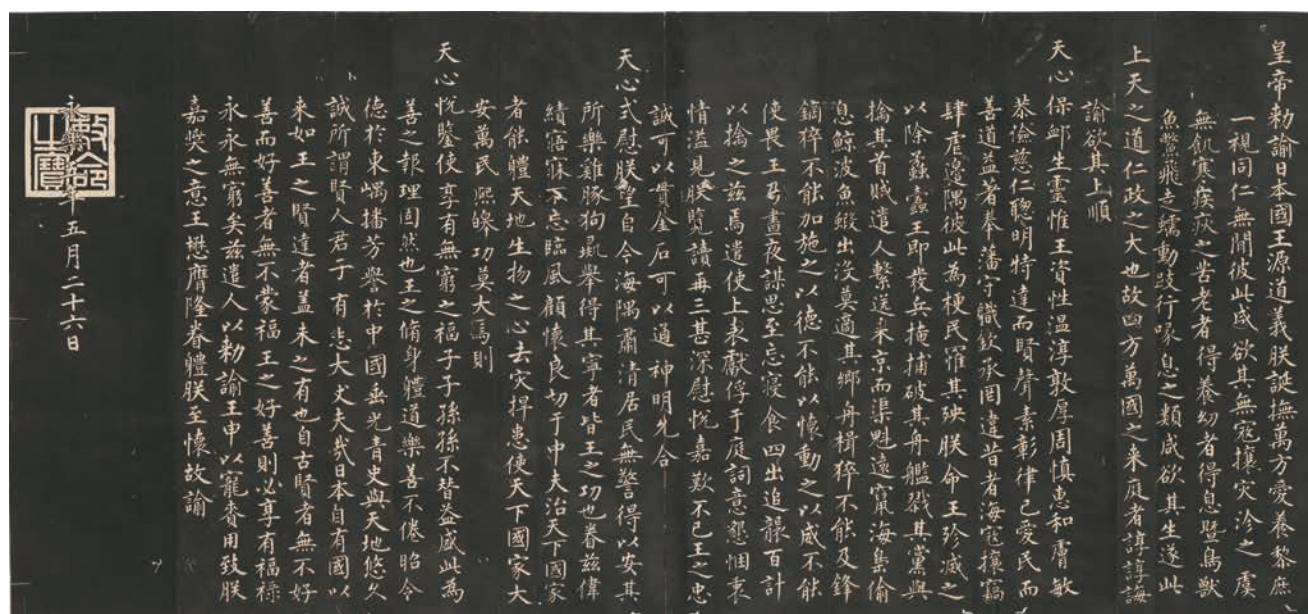 皇帝勅諭日本國王源道義朕誕撫萬方愛養黎庶
一視同仁無間彼此咸欲其無寇攘灾沴之虞
無飢寒疾疢之苦老者得養幼者得息暨鳥獸
魚鱉飛走蠕動跂行喙息之類咸欲其生遂此
上天之道仁政之大也故四方萬國之来庭者諄諄誨
諭欲其上順
天心保卹生靈惟王資性温淳敦厚周慎惠和膚敏
恭儉慈仁聰明特達而賢聲素彰律己愛民而
善道益著奉藩守職欽承罔違昔者海寇攘竊
肆虐邊隅彼此為梗民罹其殃朕命王殄滅之
以除蟊蠹王即發兵掩捕破其舟艦戮其黨與
擒其首賊遣人繫送来京而渠魁遠竄海島偷
息鯨波魚鰕出没莫適其鄉舟楫猝不能及鋒
鏑猝不能加施之以德不能以懷動之以威不能
使畏王乃晝夜謀思至忘寝食四出追躡百計
以擒之茲焉遣使上表獻俘于庭詞意懇悃衷
情溢見朕覽讀再三甚深慰悦嘉歎不已王之忠
誠可以貫金石可以通神明允合
天心式慰朕望自今海隅肅清居民無警得以安其
所樂雞豚狗彘舉得其寧者皆王之功也眷茲偉
績寤寐不忘臨風顧懷良切于中夫治天下國家
者能體天地生物之心去灾捍患使天下國家大
安萬民熙皥功莫大焉則
天心悦鑒使享有無窮之福子子孫孫不替益盛此為
善之報理固然也王之脩身體道樂善不倦昭令
德於東嵎播芳譽於中國垂光青史與天地悠久
誠所謂賢人君子有志大丈夫哉日本自有國以
来如王之賢達者盖未之有也自古賢者無不好
善而好善者無不蒙福王之好善則必享有福祿
永永無窮矣茲遣人以勅諭王申以寵賚用致朕
嘉奬之意王懋膺隆眷體朕至懷故諭
永樂年五月二十六日
敕命之寶